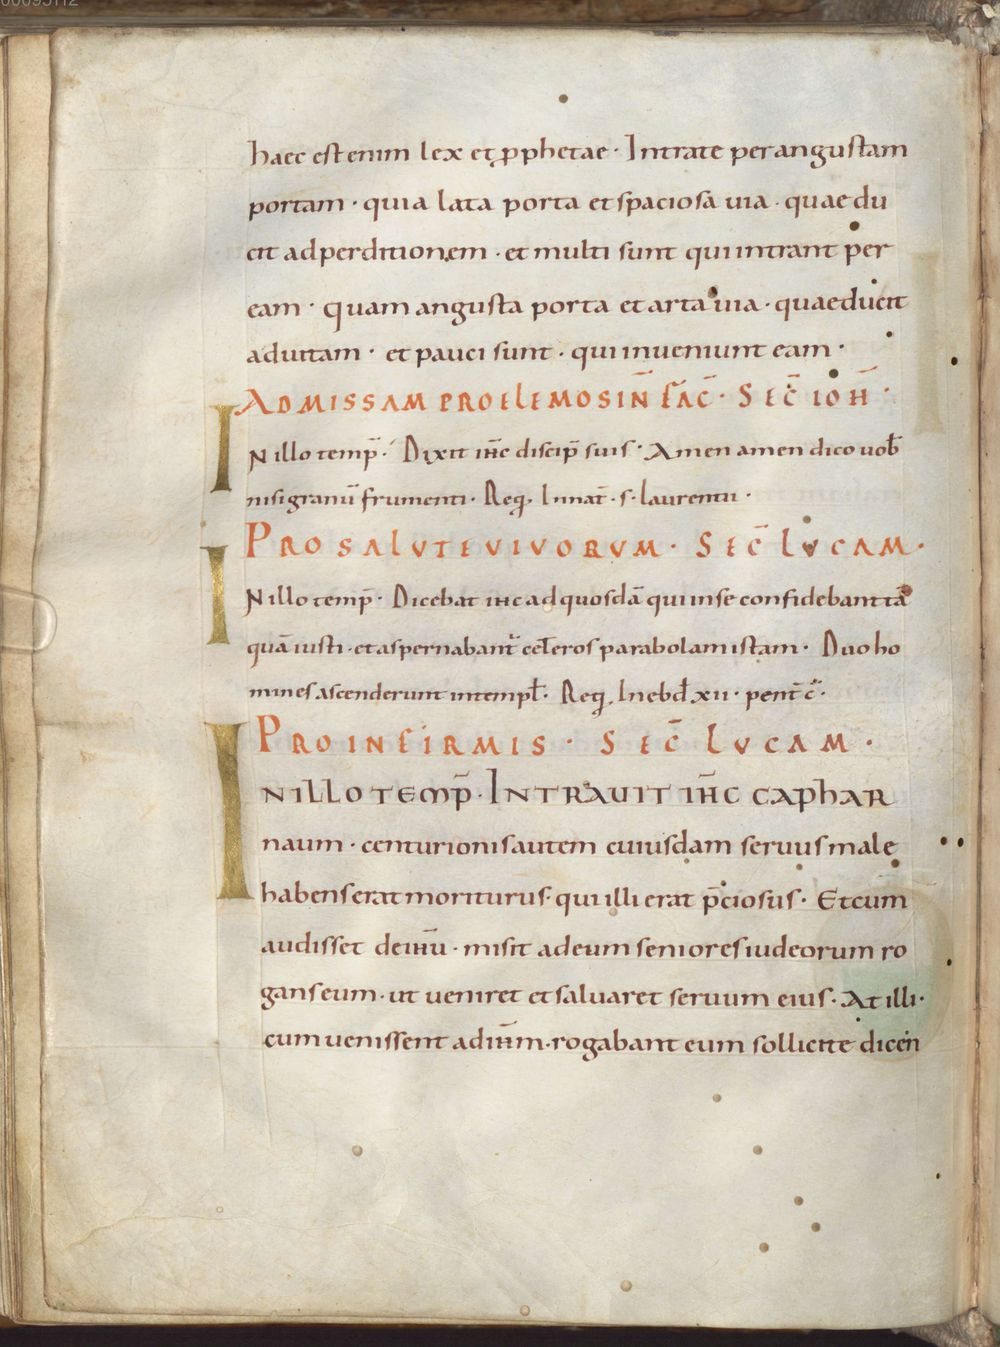 haec est enim lex et ꝓphetae · Intrate per angustam
portam · quia lata porta et spaciosa uia · quae du
cit ad perditionem · et multi sunt qui intrant per
eam · quam angusta porta et arta uia · quae ducit
ad uitam · et pauci sunt · qui inueniunt eam ·
AD MISSAM PRO ELEMOSIN̄ FAC̄ · SEC̄ IOH̄ ·
IN illo temp̄ · Dixit ih̄c discip̄ suis · Amen amen dico uob̄
nisi granū frumenti · Req̄ · In nat̄ · s · laurentii ·
PRO SALUTE VIVORVM · SEC̄ LVCAM ·
IN illo temp̄ · Dicebat ihc ad quosdā qui in se confidebant tā
quā iusti · et aspernabant̄ cet̄eros parabolam istam · Duo ho
mines ascenderunt in templ̄ · Req̄ · In ebd̄ xii · pent̄ c̄ ·
PRO INFIRMIS · SEC̄ LVCAM ·
IN ILLO TEMP̄ · INTRAUIT IH̄C CAPHAR
naum · centurionis autem cuiusdam seruus male
habens erat moriturus · qui illi erat p̄ciosus · Et cum
audisset de ih̄u · misit ad eum seniores iudeorum ro
gans eum · ut ueniret et saluaret seruum eius · At illi ·
cum uenissent ad ih̄m · rogabant eum sollicite dicen